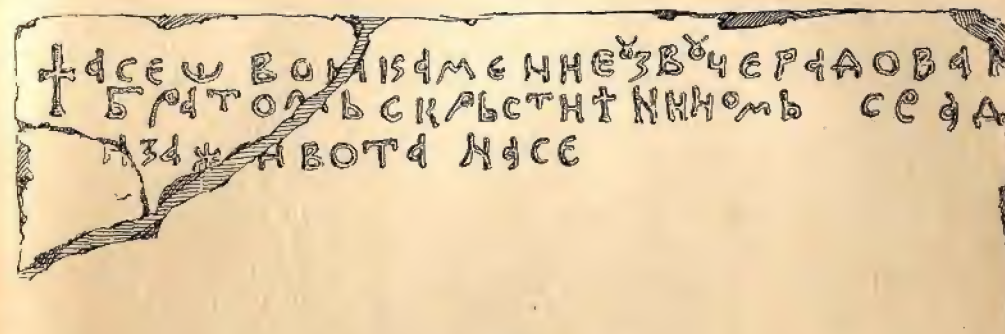 ✝ А СЕ Ѡ ВОИ КАМЕНИЕ ꙊЗВꙊЧЕ РАДОВАН
БРАТОМЬ СКРЬСТИ✝НИНОМЬ СРАД
ИЗА Ж ИВОТА НАСЕ